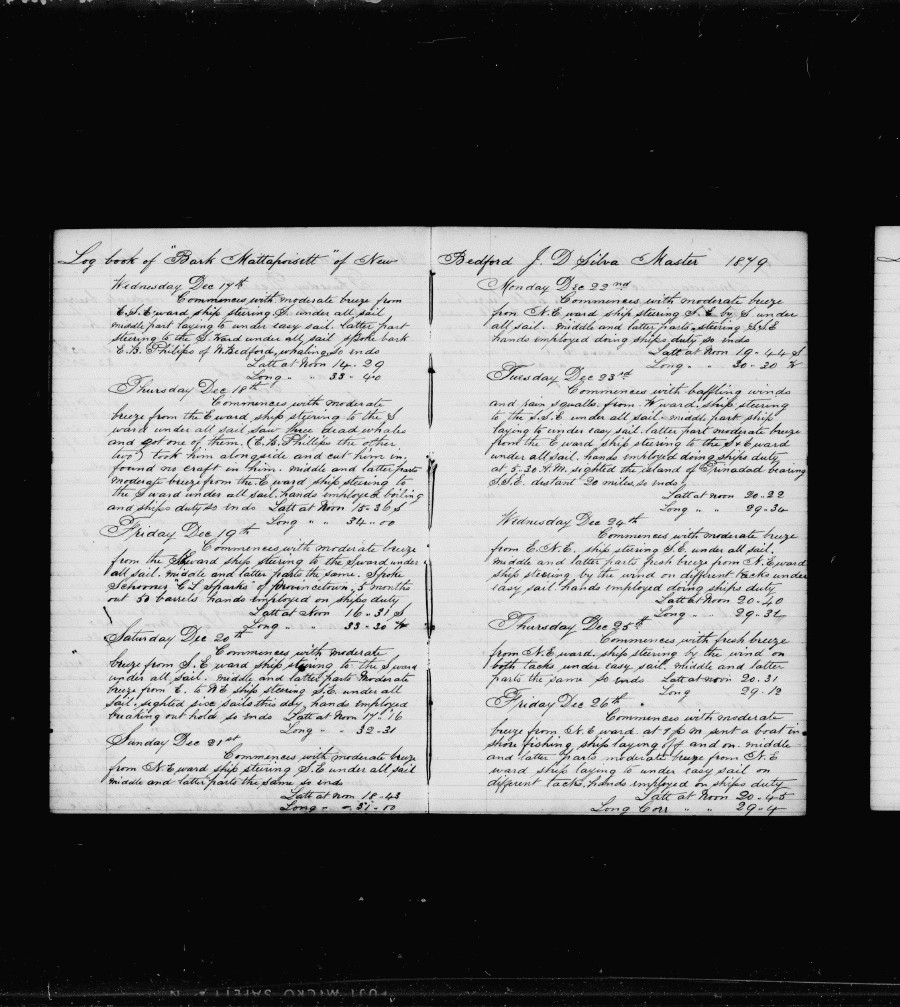 Log book of "Bark Mattapoisett" of New Bedford J. D Silva Master 1879
Wednesday Dec 17th
Commences with moderate breeze from
E.S.E ward ship steering S. under all sail
middle part laying to under easy sail. latter part
steering to the S. Ward under all sail spoke bark
E.B. Philips of N. Bedford, whaling so ends
Latt at Noon 14 - 29
Long " " 33 - 40
Thursday Dec 18th
Commences with moderate
breeze from the E ward ship steering to the S
ward under all sail saw three dead whales
and got one of them. (E.B. Phillips the other
two) took him alongside and cut him in,
found no craft in him. middle and latter parts
moderate breeze from the E ward ship steering to
the S ward under all sail. hands employed boiling
and ships duty so ends Latt at Noon 15 - 36 S
Long " " 34 - 00
Friday Dec 19th
Commences with moderate breeze
from the ward ship steering to the S ward under
all sail. middle and latter parts the same. Spoke
Schooner "C L Sparks" of Provincetown, 5 months
out 50 barrels hands employed on ships duty
Latt at Noon 16 - 31 S
Long " " 33 - 30 W
Saturday Dec 20th
Commences with moderate
breeze from S. E ward ship steering to the S ward
under all sail. middle and latter parts moderate
breeze from E. to NE ship steering S.E. under all
sail. sighted six sails this day, hands employed
breaking out hold so ends Latt at Noon 17 - 16
Long " " 32 - 31
Sunday Dec 21st
Commences with moderate breeze
from N.E ward ship steering S.E under all sail
middle and latter parts the same so ends
Latt at noon 18 - 43
Long " - 31 - 00
Monday Dec 22nd
Commences with moderate breeze
from N.E ward ship steering S.E. by S under
all sail. middle and latter parts steering S.S.E
hands employed doing ships duty so ends
Latt at Noon 19 - 44 S
Long " " 30 - 30 W
Tuesday Dec 23rd
Commences with baffling winds
and rain squalls from W ward, ship steering
to the S.S.E under all sail. middle part ship
laying to under easy sail. latter part moderate breeze
from the E ward ship steering to the S & E ward
under all sail. hands employed doing ships duty
at 5-30 A.M. sighted the island of Trinadad bearing
S.S.E. distant 20 miles. so ends
Latt at noon 20 - 22
Long " " 29 - 34
Wednesday Dec 24th
Commences with moderate breeze
from E.N.E. ship steering S.E. under all sail.
middle and latter parts fresh breeze from N.E ward
ship steering by the wind on different tacks under
easy sail. hands employed doing ships duty
Latt at Noon 20 - 40
Long " " 29 - 31
Thursday Dec 25th
Commences with fresh breeze
from N.E ward. ship steering by the wind on
both tacks under easy sail. middle and latter
parts the same so ends Latt at noon 20 - 31
Long 29 - 12
Friday Dec 26th
Commences with moderate
breeze from N.E ward. at P M sent a boat in
shore fishing ship laying off and on. middle
and latter parts moderate breeze from N.E
ward ship laying to under easy sail on
different tacks, hands employed on ships duty
Latt at Noon 20 - 45
Long Corr " " 29 - 4